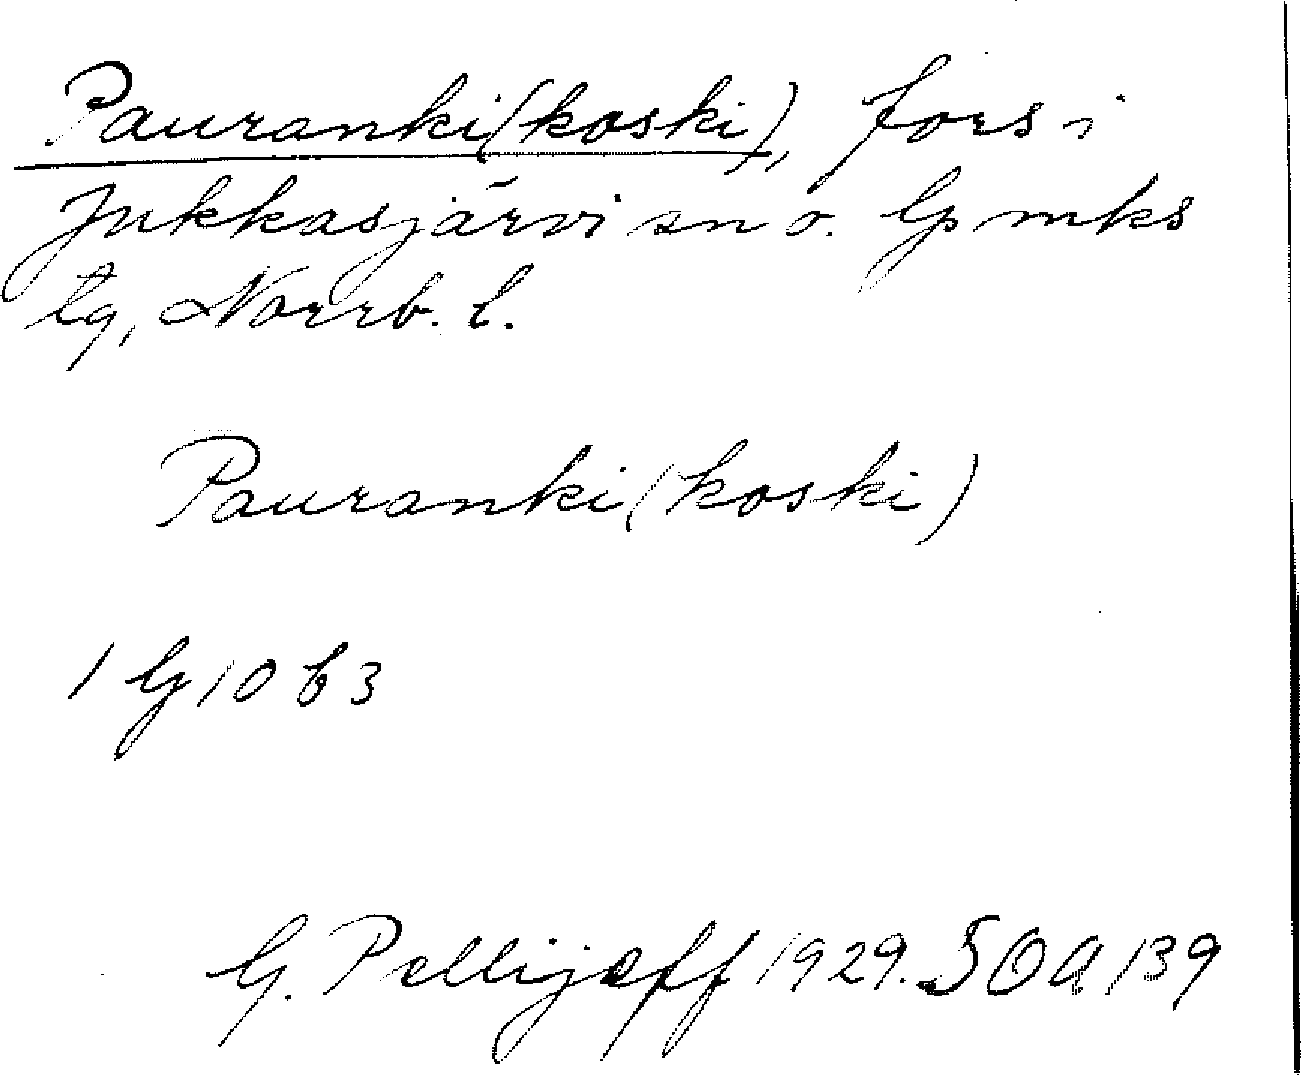 Pauranki(koski), fors i
Jukkasjärvi sn o. Gp mks
tg, Norrb. l.
Pauranki(koski)
1 G 10 b 3
G. Pellijeff 1929. SOA 139